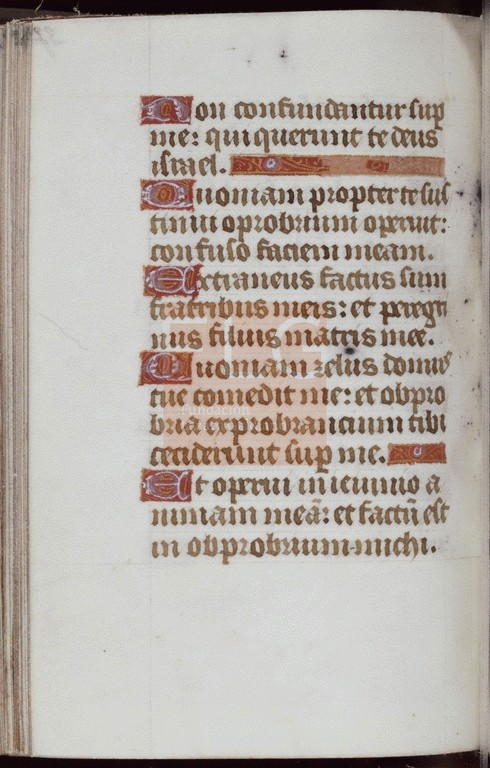 Non confundantur sup
me: qui querunt te deus
israel.
Quoniam propter te sus
tinui oprobrium operuit:
confusio faciem meam.
Extraneus factus sum
fratribus meis: et peregri
nus filiis matris mee.
Quoniam zelus domus
tue comedit me: et obpro
bria exprobrancium tibi
ceciderunt sup me.
Et operui in ieiunio a
nimam meā: et factū est
in obprobrium michi.
Fundación